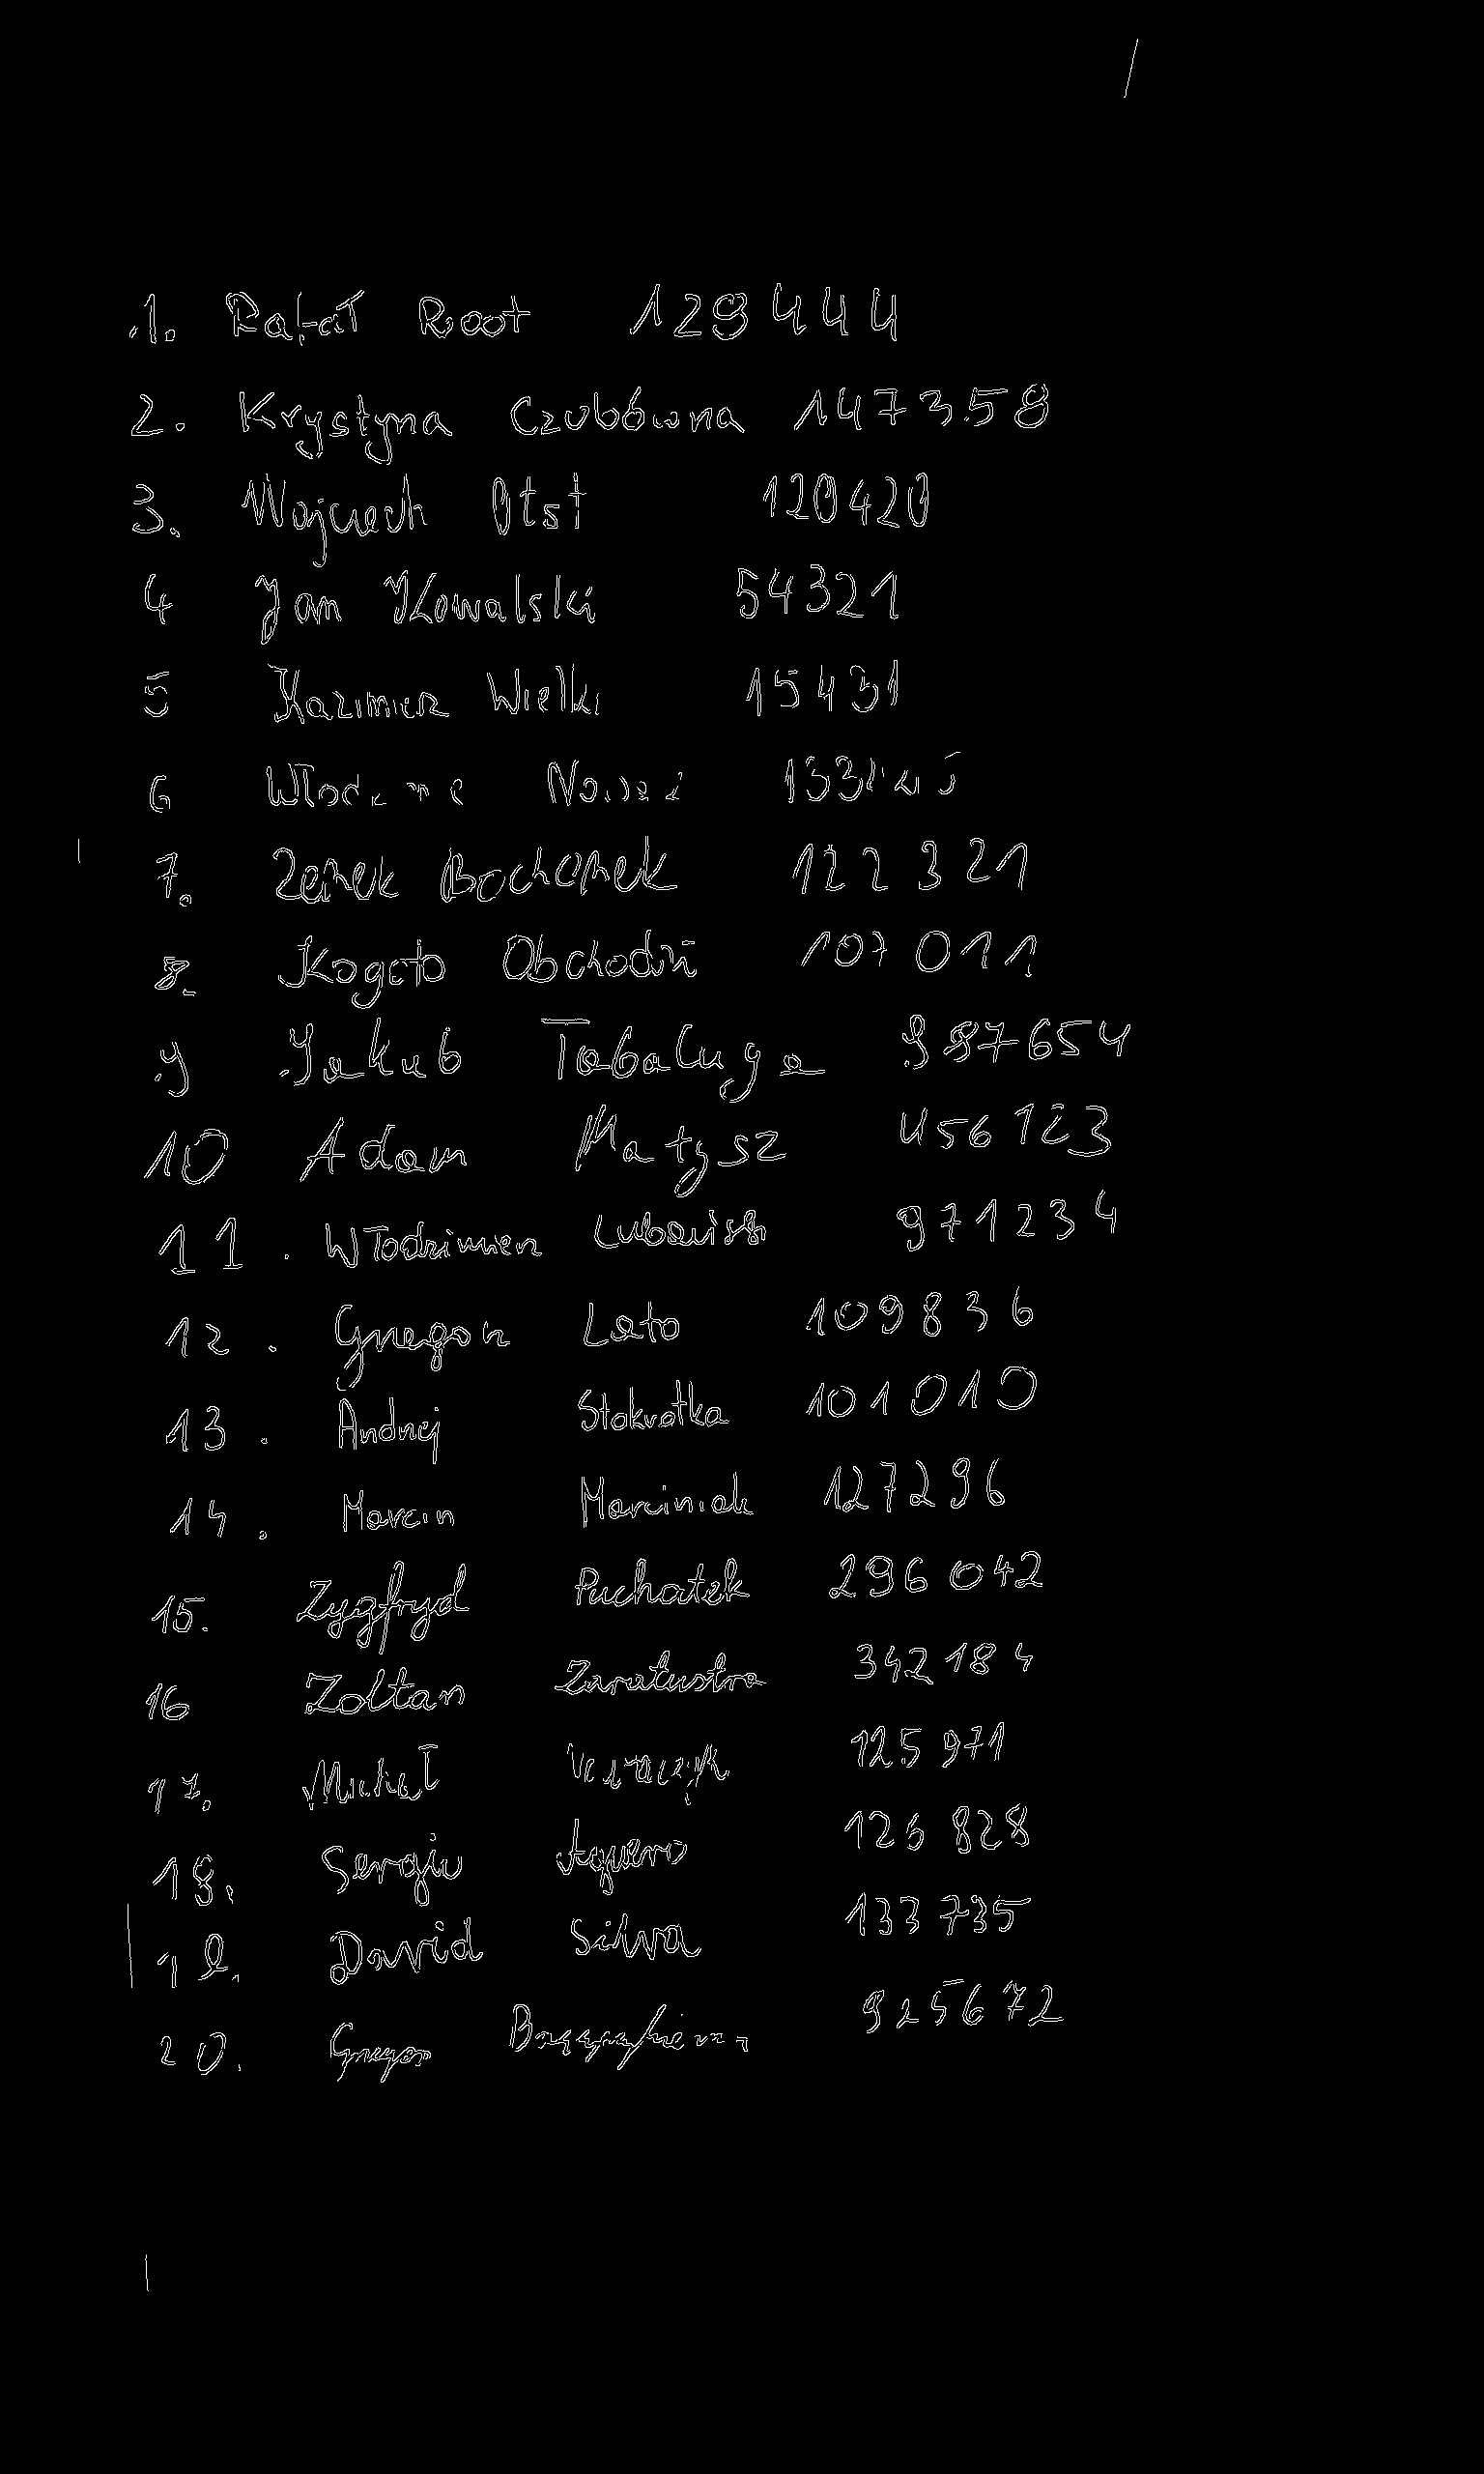 1. Rafał Root 129444
2. Krystyna Czubówna 147358
3. Wojciech Otst 120420
4 Jan Kowalski 54321
5 Kazimierz Wielki 15431
6
7. Zenek Bochenek 122321
8. Kogoto Obchodzi 107011
9 Jakub Tabaluga 987654
10 Adam Matysz 456123
11. Włodzimierz 971234
12. Grzegorz Lato 109836
13. Andrzej Stokrotka 101010
14. Marcin Marciniak 127296
15. Zygfryd Puchatek 296042
16 Zoltan Zaratustra 342184
17. Michał 125971
18. Sergio Aguero 126828
19. David Silva 133735
20. Grzegorz 925672